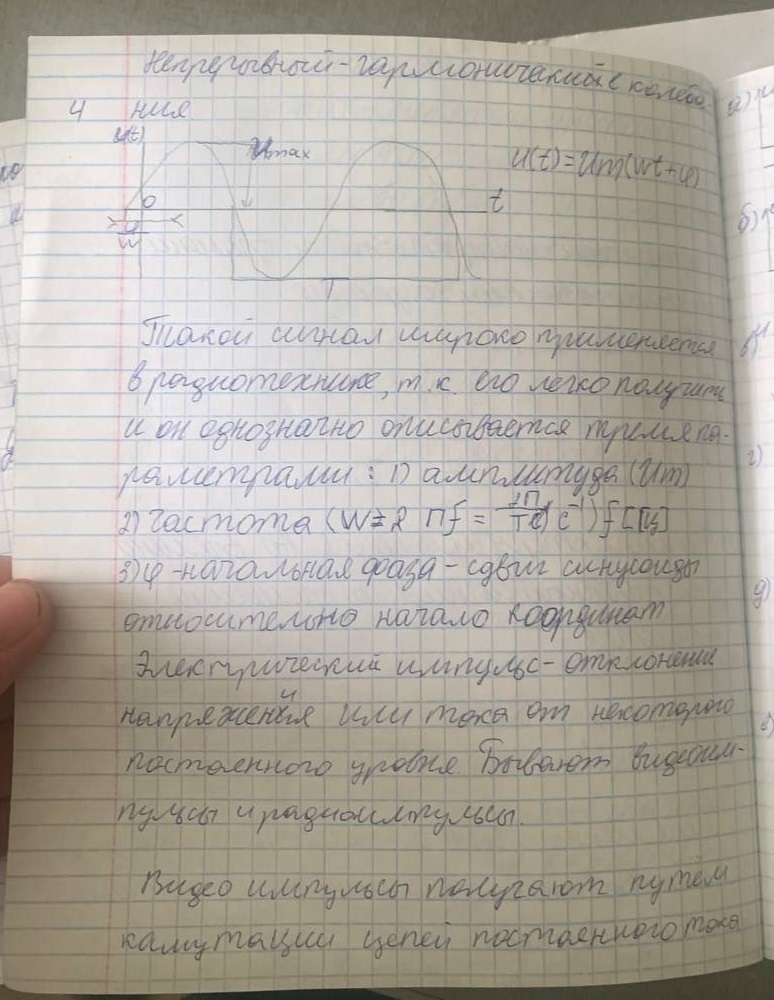 Непрерывный-гармонический е колеба-
4 ния
u(t)
Umax
u(t)=Um(wt+φ)
0
t
φ
w
T
Такой сигнал широко применяется
в радиотехнике, т.к. его легко получить
и он однозначно описывается тремя па-
раметрами: 1) амплитуда (Um)
2) Частота (W=2 Пf = 2П/T c⁻¹) f [Гц]
3) φ-начальная фаза - сдвиг синусоиды
относительно начало координат
Электрический импульс- отклонение
напряжения или тока от некоторого
постоянного уровня. Бывают видеоим-
пульсы и радиоимпульсы.
Видео импульсы получают путём
камутации цепей постоянного тока
а)
б)
в)
г)
д)
е)